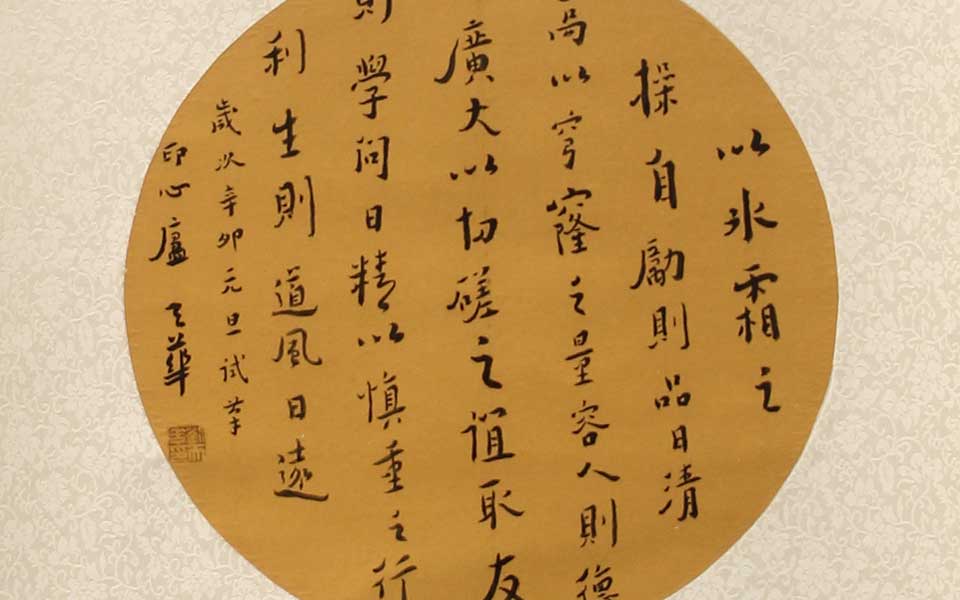 以氷霜之
操自勵則品日清
高以穹窿之量容人則德
廣大以切磋之誼取友
則學問日精以慎重之行
利生則道風日遠
歲次辛卯元旦试筆
印心廬 華